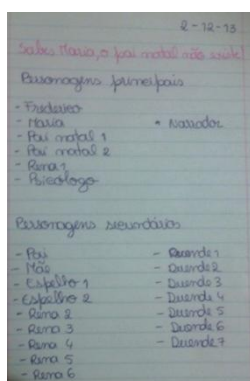 2-12-13
Sabes Maria, o pai natal não existe!
Personagens principais
- Frederico
- Maria
- Narrador
- Pai natal 1
- Pai natal 2
- Rena 1
- Psicólogo
Personagens secundários
- Pai
- Mãe
- Espelho 1
- Espelho 2
- Rena 2
- Rena 3
- Rena 4
- Rena 5
- Rena 6
- Duende 1
- Duende 2
- Duende 3
- Duende 4
- Duende 5
- Duende 6
- Duende 7